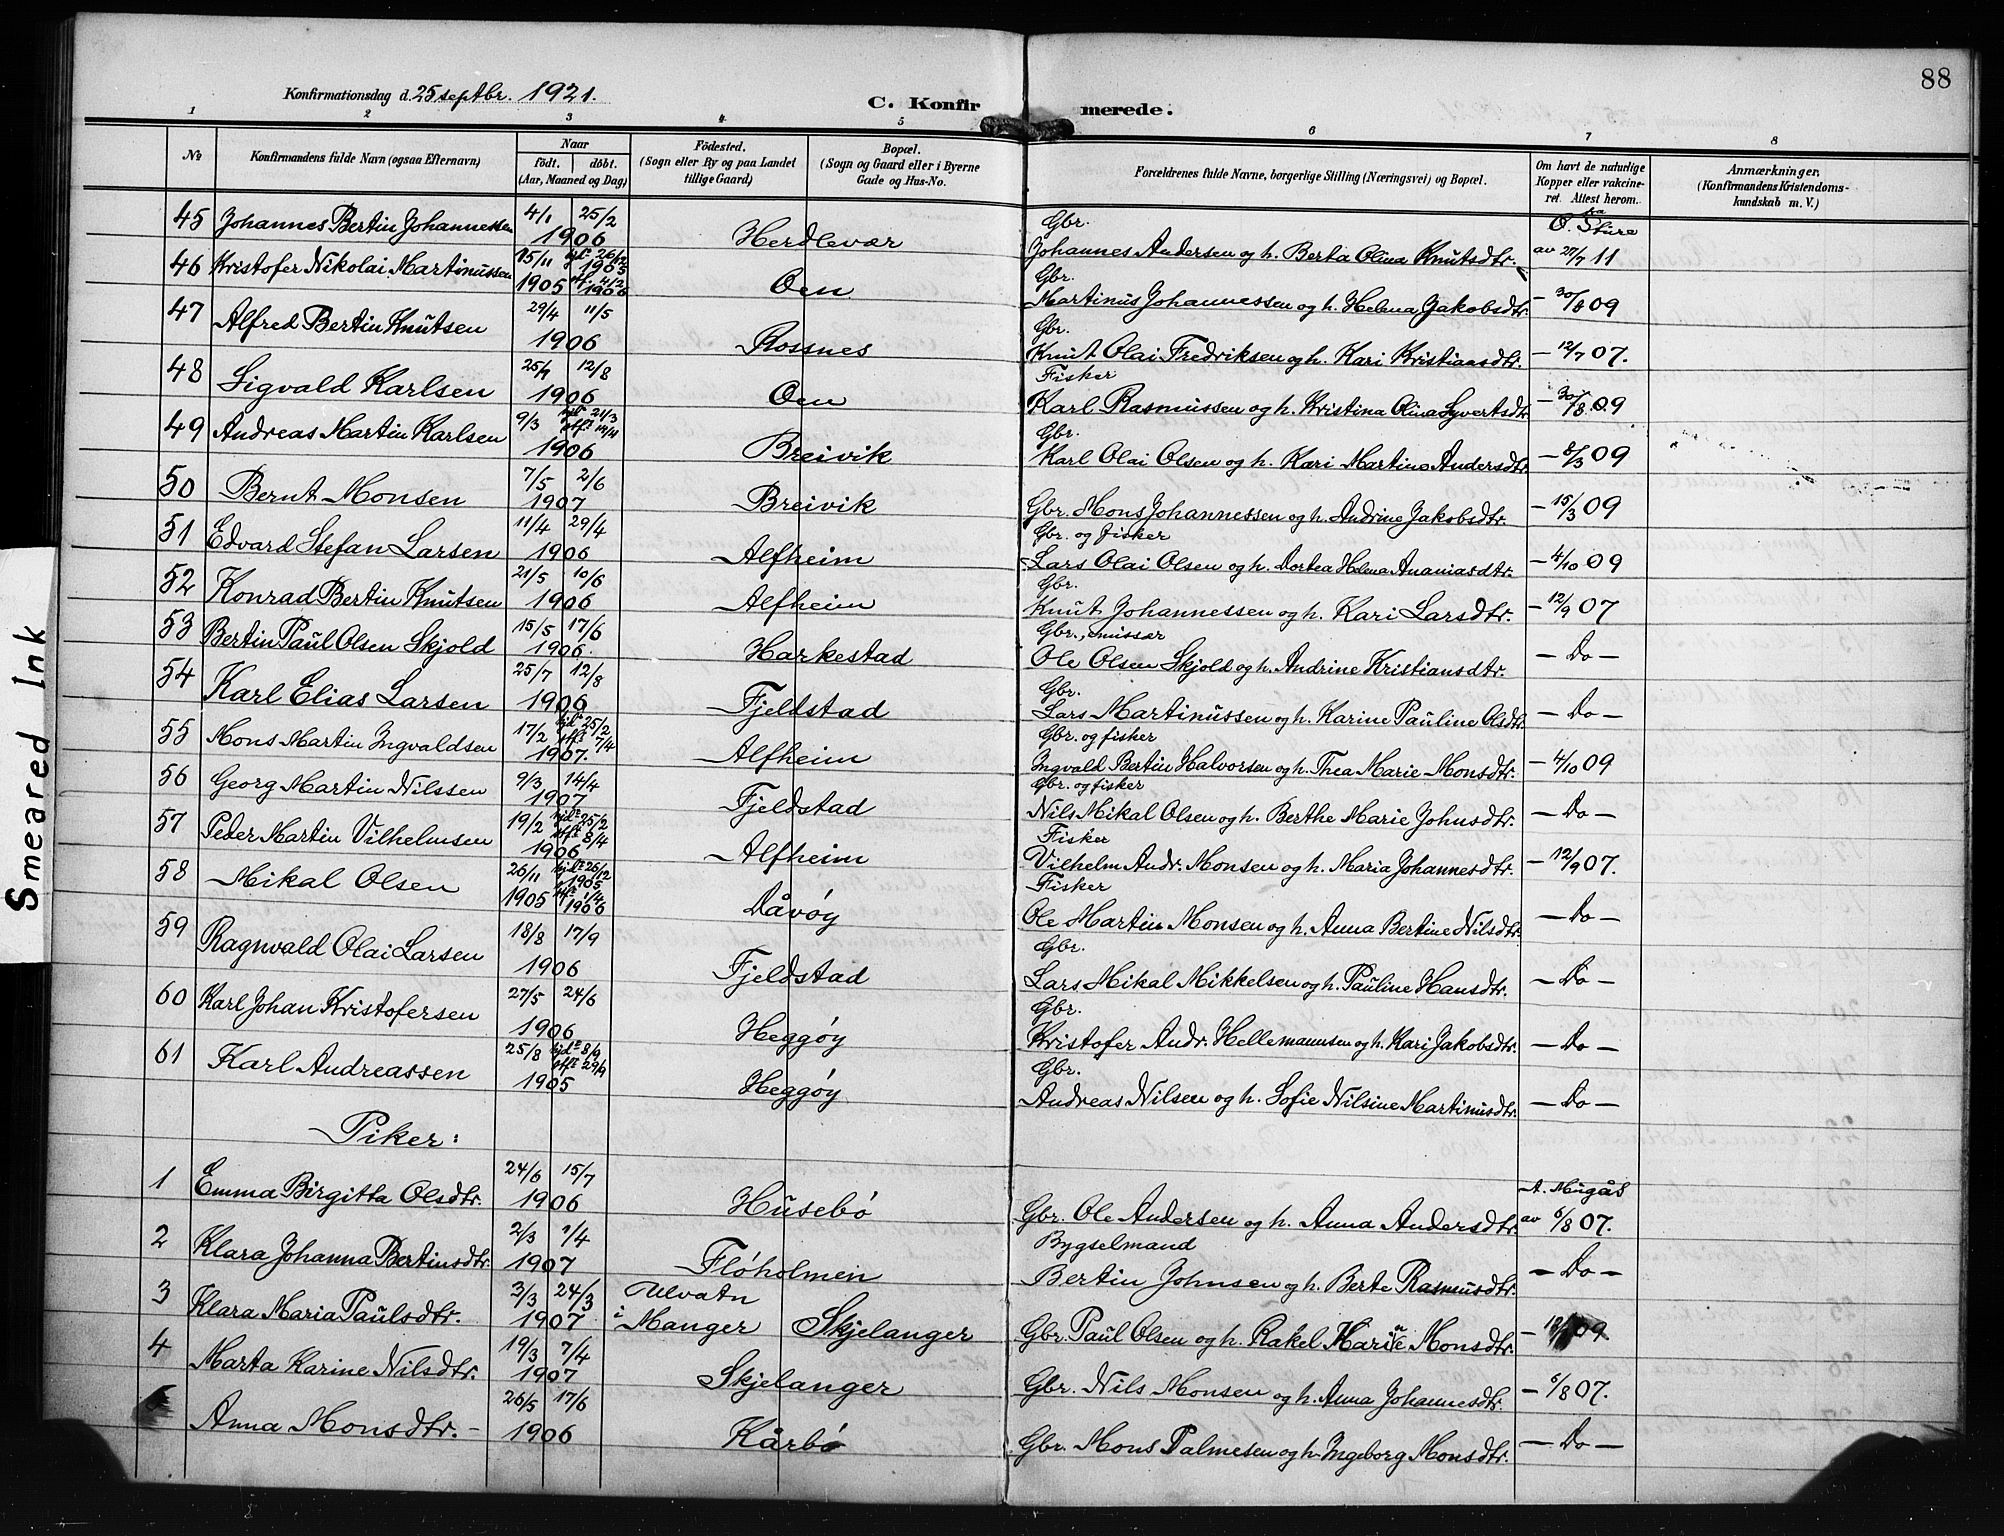 88
Konfirmationsdag d. 25 septbr. 1921.
C. Konfirmerede.
1 2 3 4 5 6 7 8
№ Konfirmandens fulde Navn (ogsaa Efternavn) Naar født. døbt. (Aar, Maaned og Dag) Fødested. (Sogn eller By og paa Landet tillige Gaard) Bopæl. (Sogn og Gaard eller i Byerne Gade og Hus-No. Forældrenes fulde Navne, borgerlige Stilling (Næringsvei) og Bopæl. Om havt de naturlige Kopper eller vakcineret. Attest herom. Anmærkninger. (Konfirmandens Kristendomskundskab m. V.)
45 Johannes Bertin Johannessen 4/1 25/2 1906 Herdlevær Gbr. Johannes Andersen og h. Berta Olina Knutsdtr. av 27/7 11
46 Kristofer Nikolai Martinussen 15/11 1905 hjd. 26/12 1905 stf. 4/2 1906 Oen Gbr. Martinus Johannessen og h. Helena Jakobsdtr. – 30/8 09
47 Alfred Bertin Knutsen 29/4 11/5 1906 Rossnes Gbr. Knut Olai Fredriksen og h. Kari Kristiansdtr. – 12/7 07.
48 Sigvald Karlsen 12/8 1906 Oen Fisker Karl Rasmussen og h. Kristina Olina Syvertsdtr – 30/8 09
49 Andreas Martin Karlsen 9/3 hjd. 21/3 stf. 14/4 1906 Breivik Gbr. Karl Olai Olsen og h. Kari Martine Andersdtr – 8/3 09
50 Bernt Monsen 7/5 2/6 1907 Breivik Gbr. Mons Johannessen og h. Andrine Jakobsdtr. – 15/3 09
51 Edvard Stefan Larsen 11/4 29/4 1906 Alfheim Gbr. og fisker Lars Olai Olsen og h. Dortea Helena Ananiasdtr. – 4/10 09
52 Konrad Bertin Knutsen 21/5 10/6 1906 Alfheim Gbr. Knut Johannessen og h. Kari Larsdtr. – 12/9 07
53 Bertin Paul Olsen Skjold 15/5 17/6 1906. Harkestad Gbr., Ole Olsen Skjold og h. Andrine Kristiansdtr. – Do –
54 Karl Elias Larsen 25/7 12/8 1906 Fjeldstad Gbr. Lars Martinussen og h. Karine Pauline Olsdtr. – Do –
55 Mons Martin Ingvaldsen 17/2 hjd. 25/2 stf. 7/4 1907. Alfheim Gbr. og fisker Ingvald Bertin Halvorsen og h. Thea Marie Monsdtr. – 4/10 09
56 Georg Martin Nilssen 9/3 14/4 1907 Fjeldstad Gbr. og fisker Nils Mikal Olsen og h. Berthe Marie Johnsdtr. – Do –
57 Peder Martin Vilhelmsen 19/2 hjd. 25/2 stf. 8/4 1906 Alfheim Fisker Vilhelm Andr. Monsen og h. Maria Johannesdtr. – 12/9 07.
58 Mikal Olsen 26/11 1905 hjd. 26/12 1905 stf. 1/4 1906 Dåvøy Fisker Ole Martin Monsen og h. Anna Bertine Nilsdtr. – Do –
59 Ragnvald Olai Larsen 18/8 17/9 1906 Fjeldstad Gbr. Lars Mikal Mikkelsen og h. Pauline Hansdtr. – Do –
60 Karl Johan Kristofersen 27/5 24/6 1906 Heggøy Gbr. Kristofer Andr. Hellemannsen og h. Kari Jakobsdtr. – Do –
61 Karl Andreassen 25/8 hjd. 8/9 stf. 29/9 1905 Heggøy Gbr. Andreas Nilsen og h. Sofie Nilsine Martinusdtr. – Do –
Piker:
1 Emma Birgitta Olsdtr. 24/6 15/7 1906 Husebø Gbr. Ole Andersen og h. Anna Andersdtr. av 6/8 07.
2 Klara Johanna Bertinsdtr. 2/3 1/4 1907 Fløholmen Bygselmand Bertin Johnsen og h. Berte Rasmusdtr. – Do –
3 Klara Maria Paulsdtr. 3/3 24/3 1907 Ulvatn i Manger Skjelanger Gbr. Paul Olsen og h. Rakel Marie Monsdtr. – 09
4 Marta Karine Nilsdtr. 19/3 7/4 1907 Skjelanger Gbr. Nils Monsen og h. Anna Johannesdtr. – 6/8 07.
Anna Monsdtr. – 26/5 17/6 1906 Kårbø Gbr. Mons Palmesen og h. Ingeborg Monsdtr. – Do –
Smeared Ink